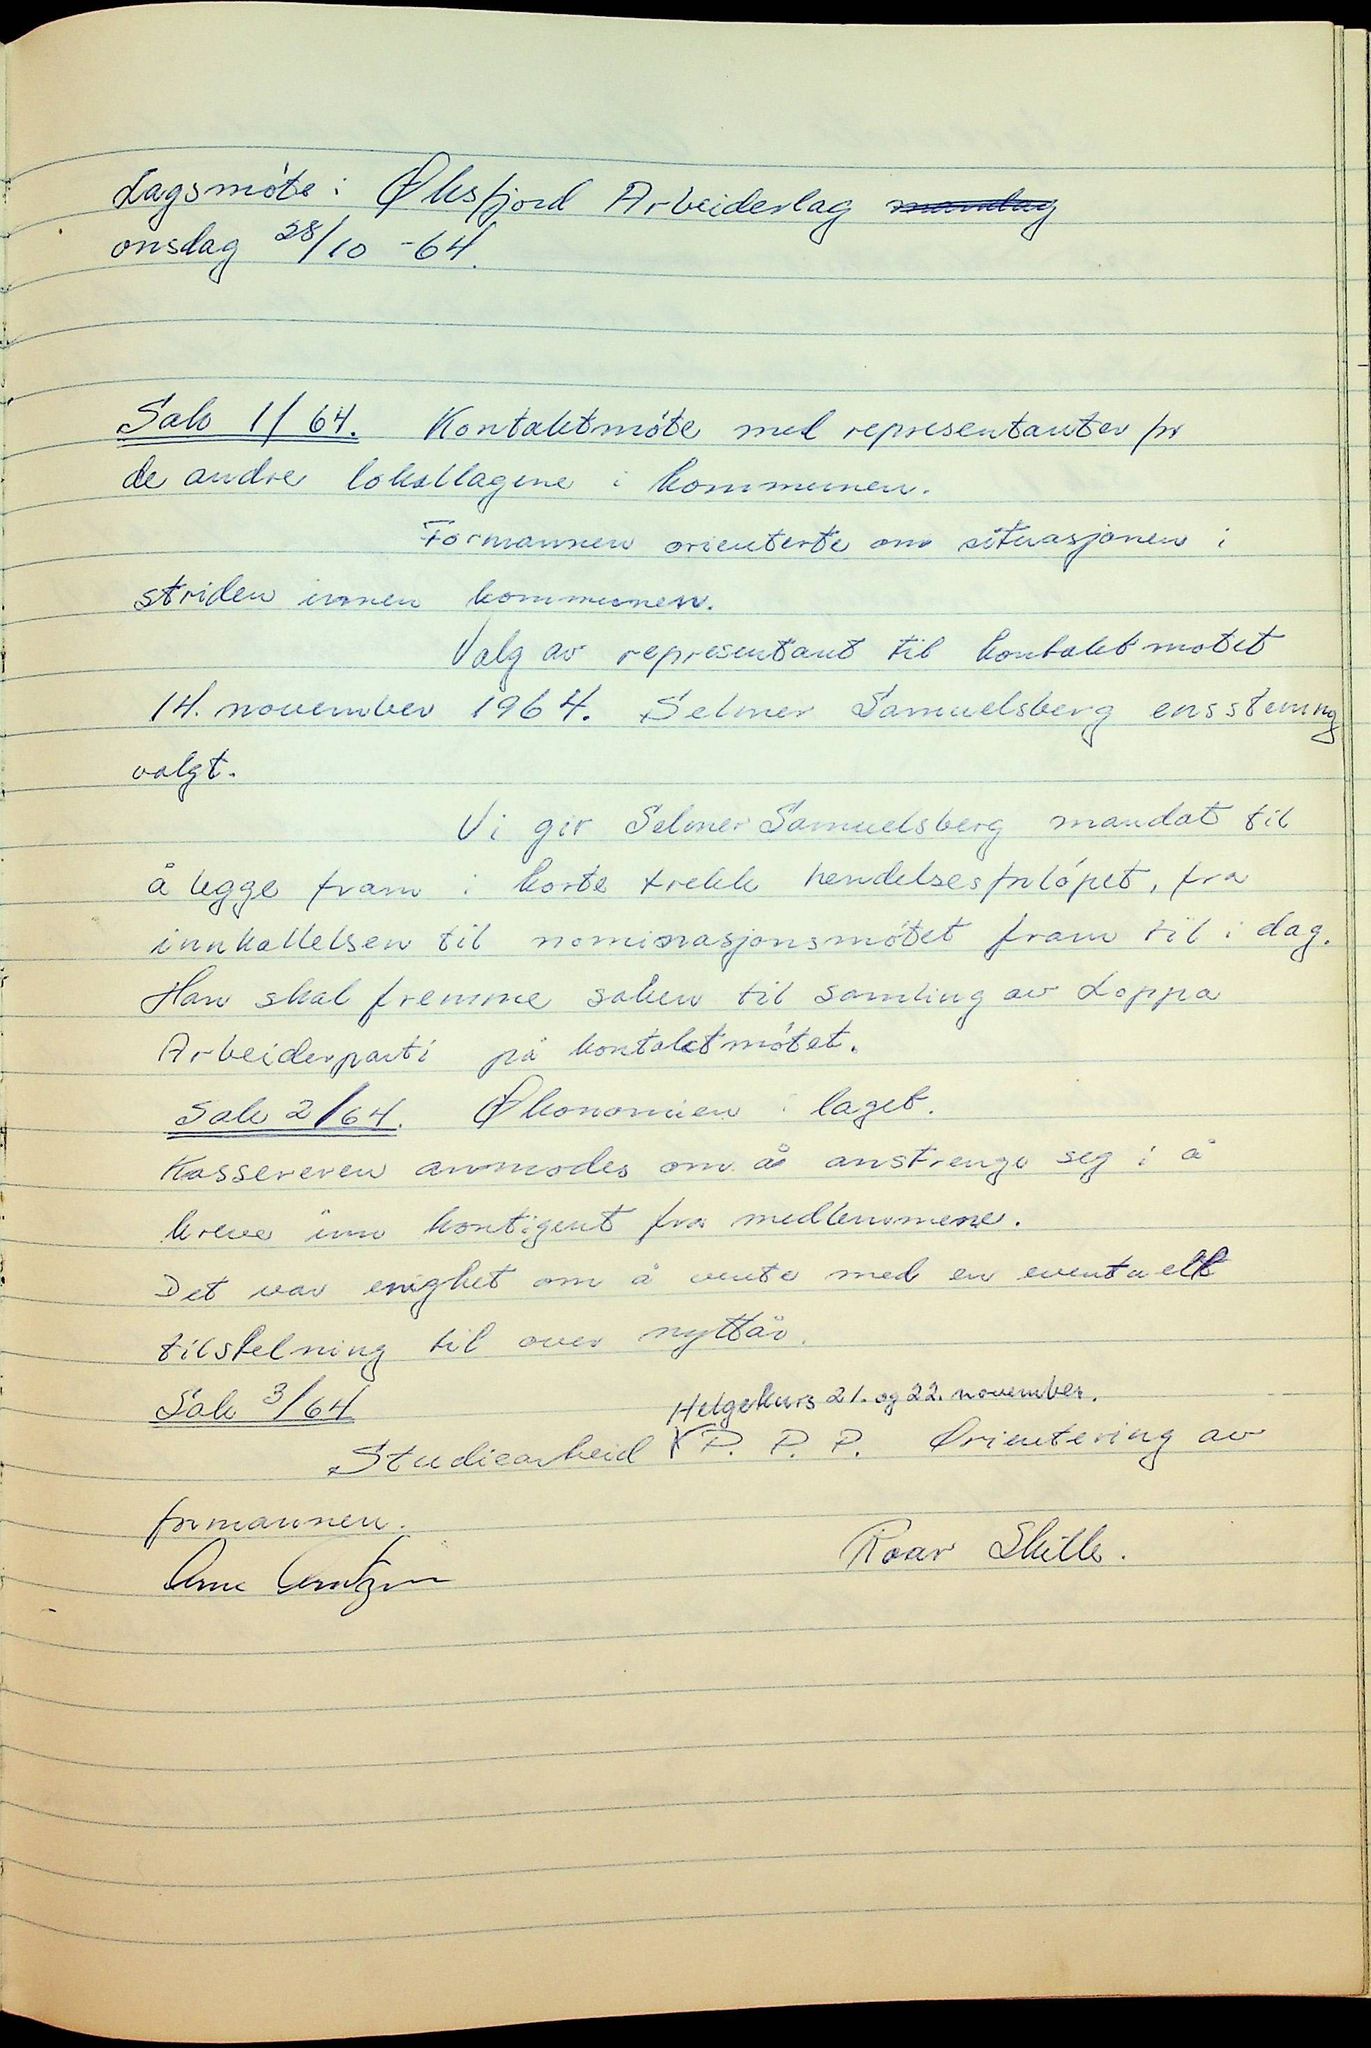 Lagsmøte i Øksfjord Arbeiderlag mandag
onsdag 28/10 -64.
Sak 1/64. Kontaktmøte med representanter for
de andre lokallagene i kommunen.
Formannen orienterte om situasjonen i
striden innen kommunen.
Valg av representant til kontaktmøtet
14. november 1964. Selmer Samuelsberg enstemmig
valgt.
Vi gir Selmer Samuelsberg mandat til
å legge fram i korte trekk hendelsesforløpet, fra
innkallelsen til nominasjonsmøtet fram til i dag.
Han skal fremme saken til samling av Loppa
Arbeiderparti på kontaktmøtet.
Sak 2/64. Økonomien i laget.
Kassereren anmodes om å anstrenge seg i å
kreve inn kontigent fra medlemmene.
Det var enighet om å vente med en eventuell
tilstelning til over nyttår.
Sak 3/64
Helgekurs 21. og 22. november.
Studiearbeid P. P. P. Orientering av
formannen.
Roar Skille.